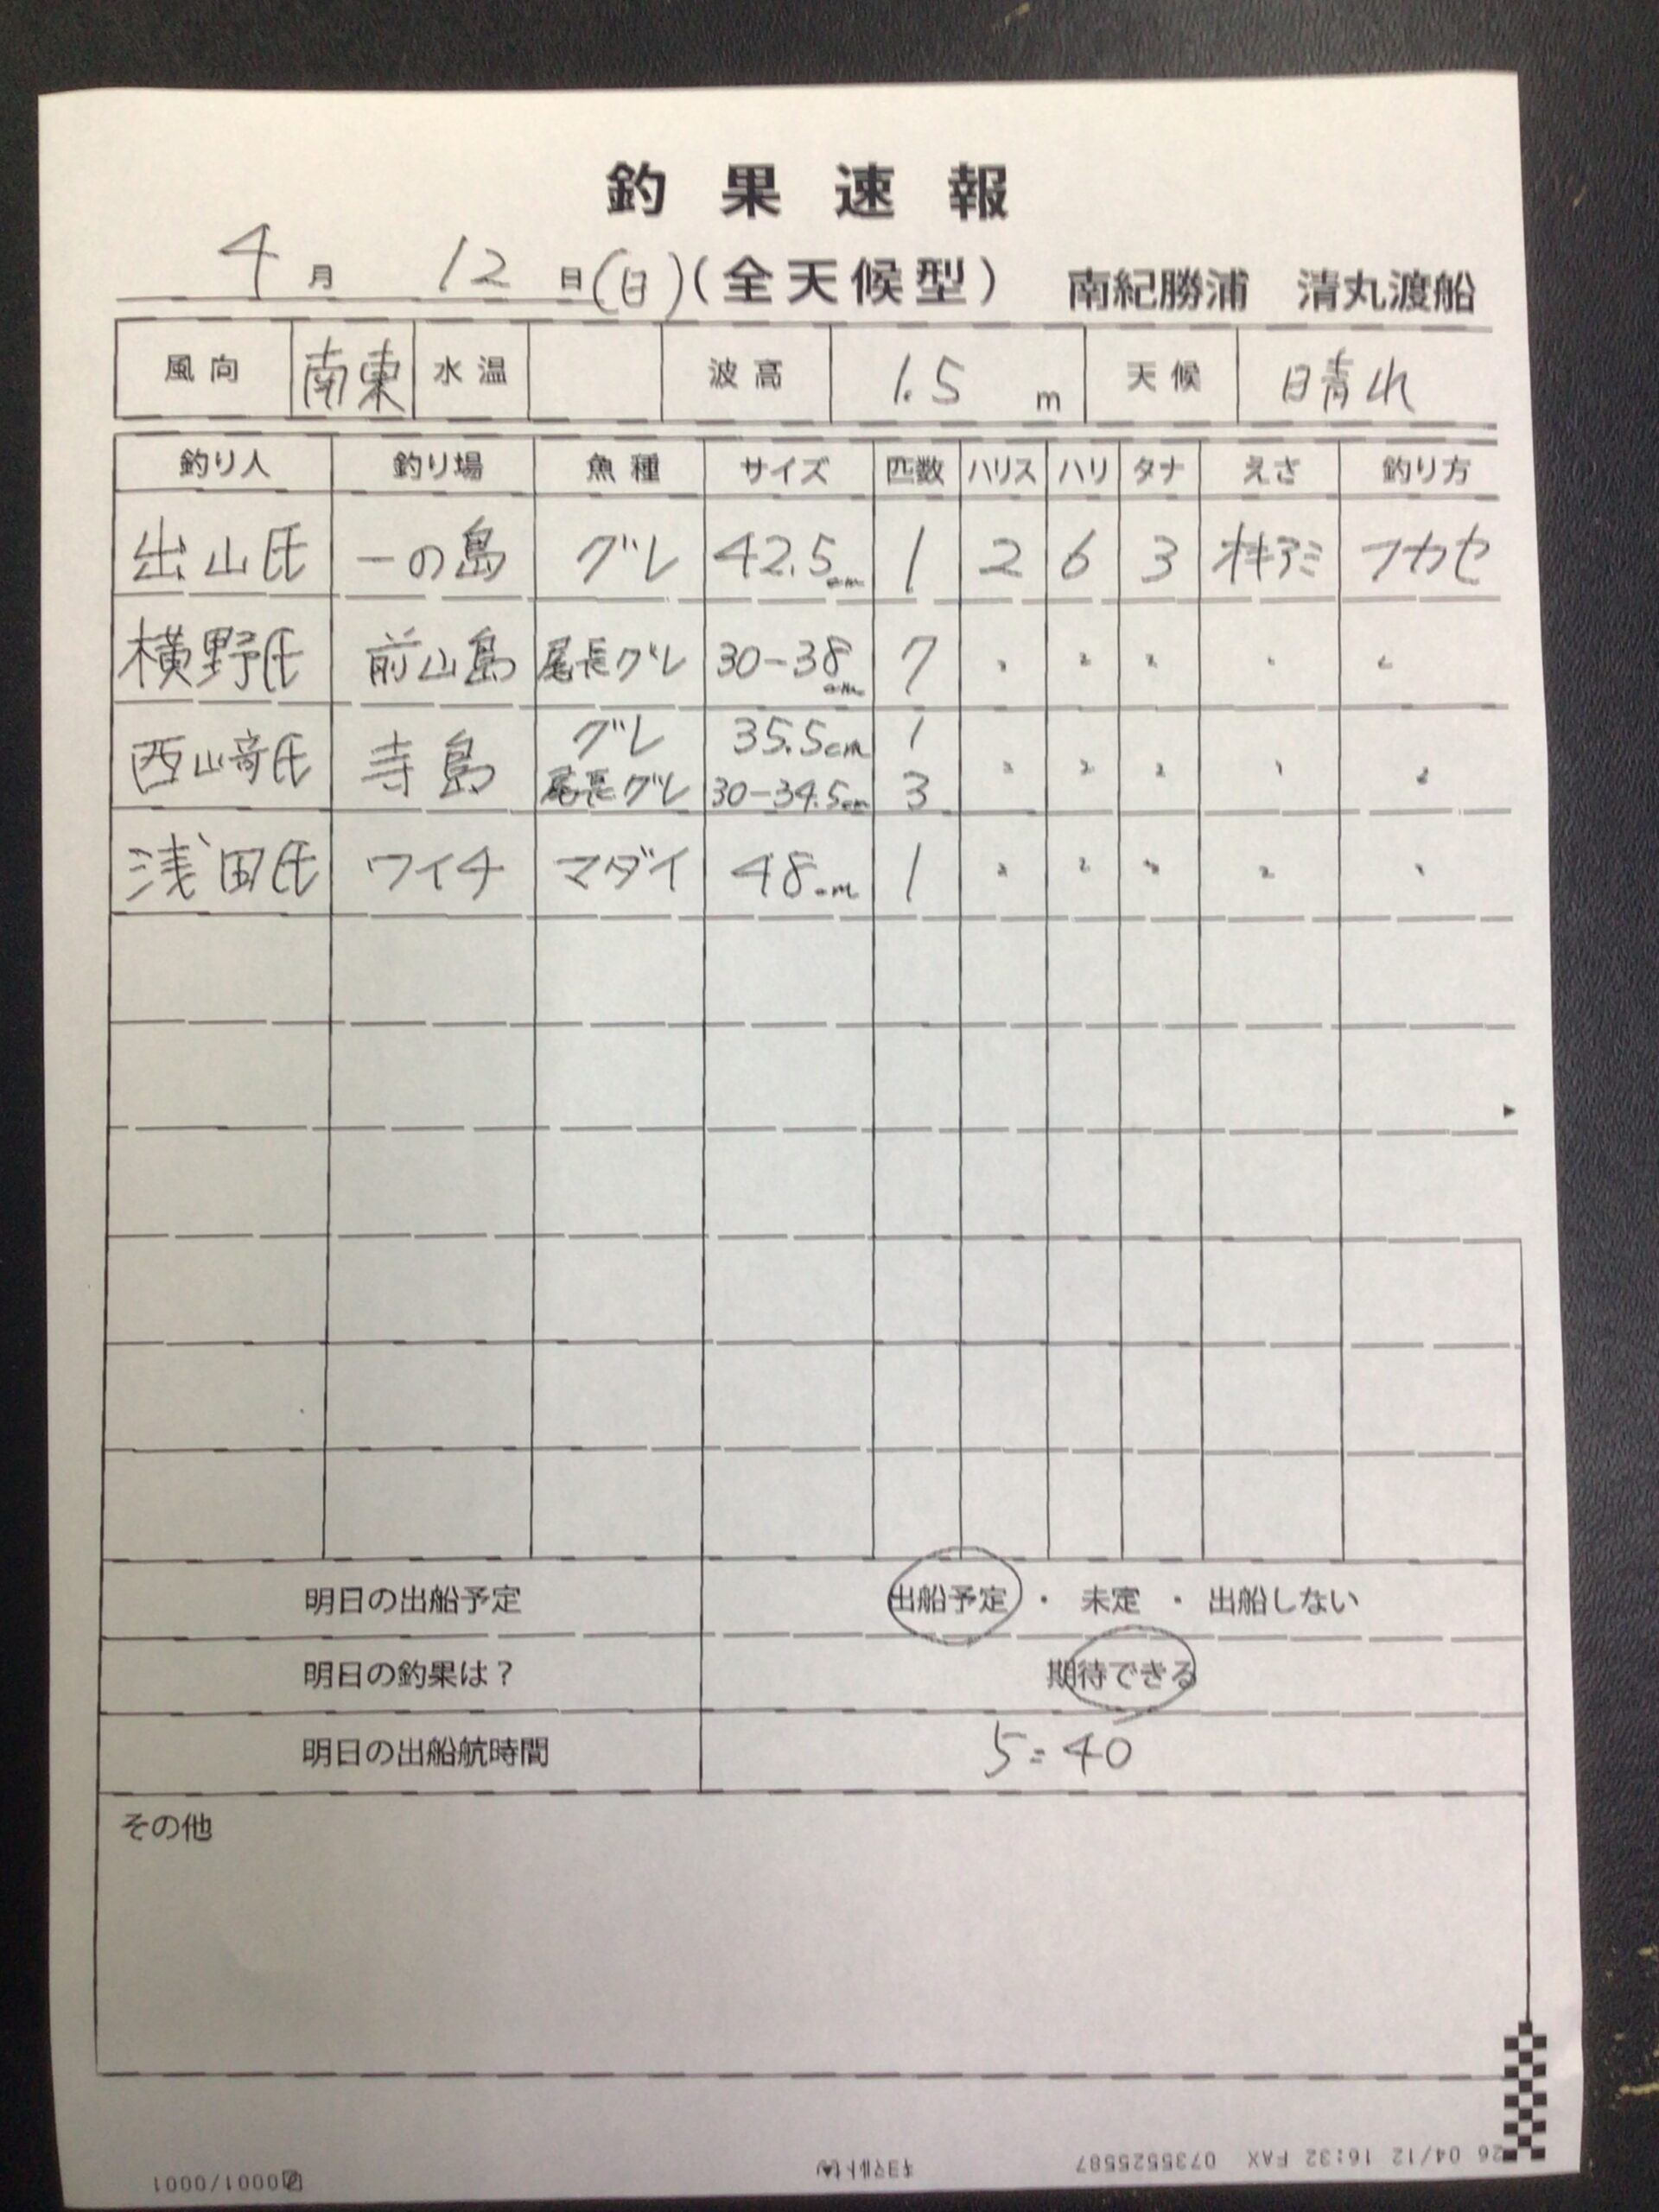 釣果速報
4月 12日(日)(全天候型) 南紀勝浦 清丸渡船
風向 南東 水温 波高 1.5 m 天候 晴れ
釣り人 釣り場 魚種 サイズ 匹数 ハリス ハリ タナ えさ 釣り方
出山氏 一の島 グレ 42.5cm 1 2 6 3 オキアミ フカセ
横野氏 前山島 尾長グレ 30-38cm 7 〃 〃 〃 〃 〃
西山崎氏 寺島 グレ 35.5cm 1 〃 〃 〃 〃 〃
尾長グレ 30-34.5cm 3
浅田氏 ワイチ マダイ 48cm 1 〃 〃 〃 〃 〃
明日の出船予定 出船予定 ・ 未定 ・ 出船しない
明日の釣果は? 期待できる
明日の出船航時間 5:40
その他
26 04/12 16:32 FAX 0735525587 キヨマルトセン 0001/0001